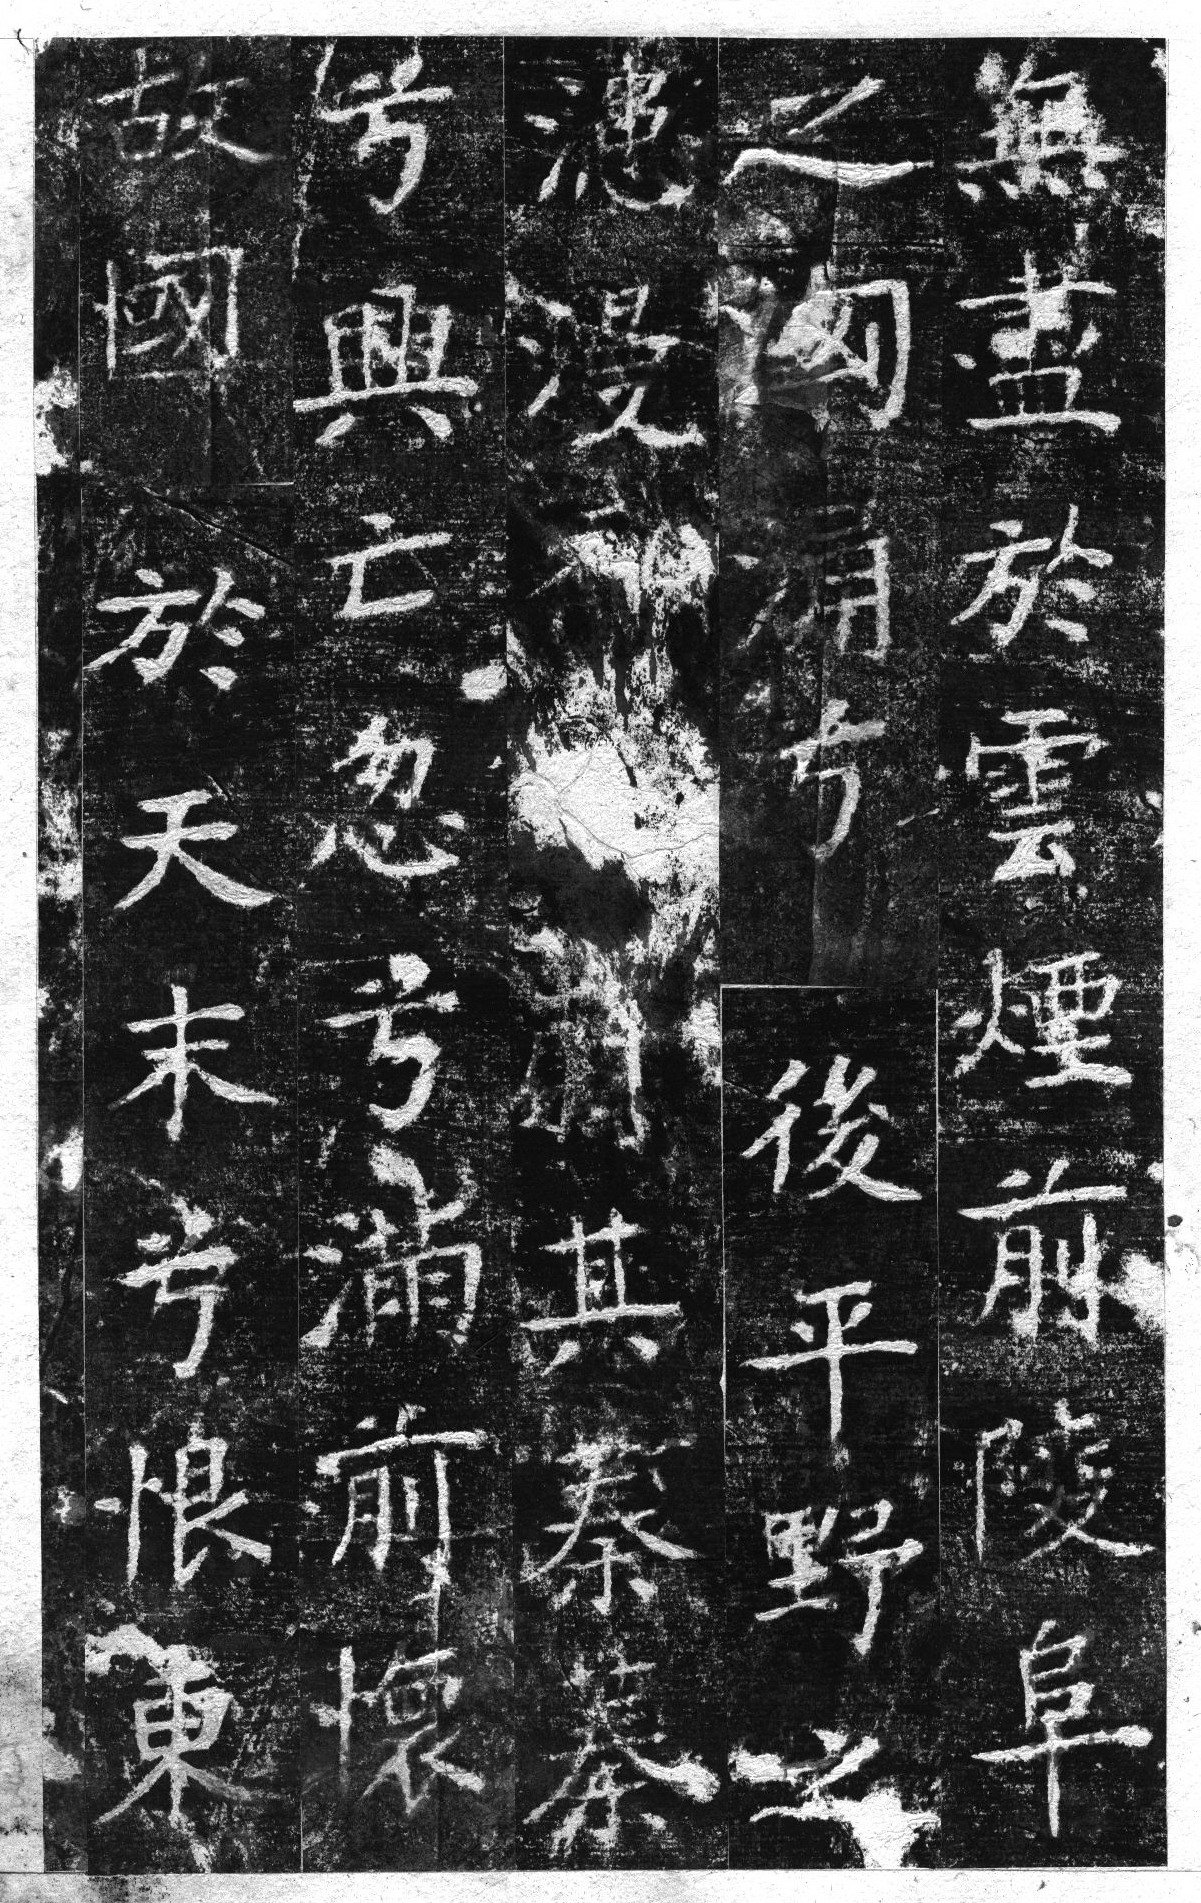 無盡於雲煙前陵阜
之洶涌兮後平野之
漶漫其蓁蓁
兮興亡忽兮滿前懷
故國於天末兮恨東